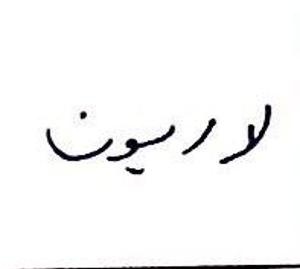 لارسيون